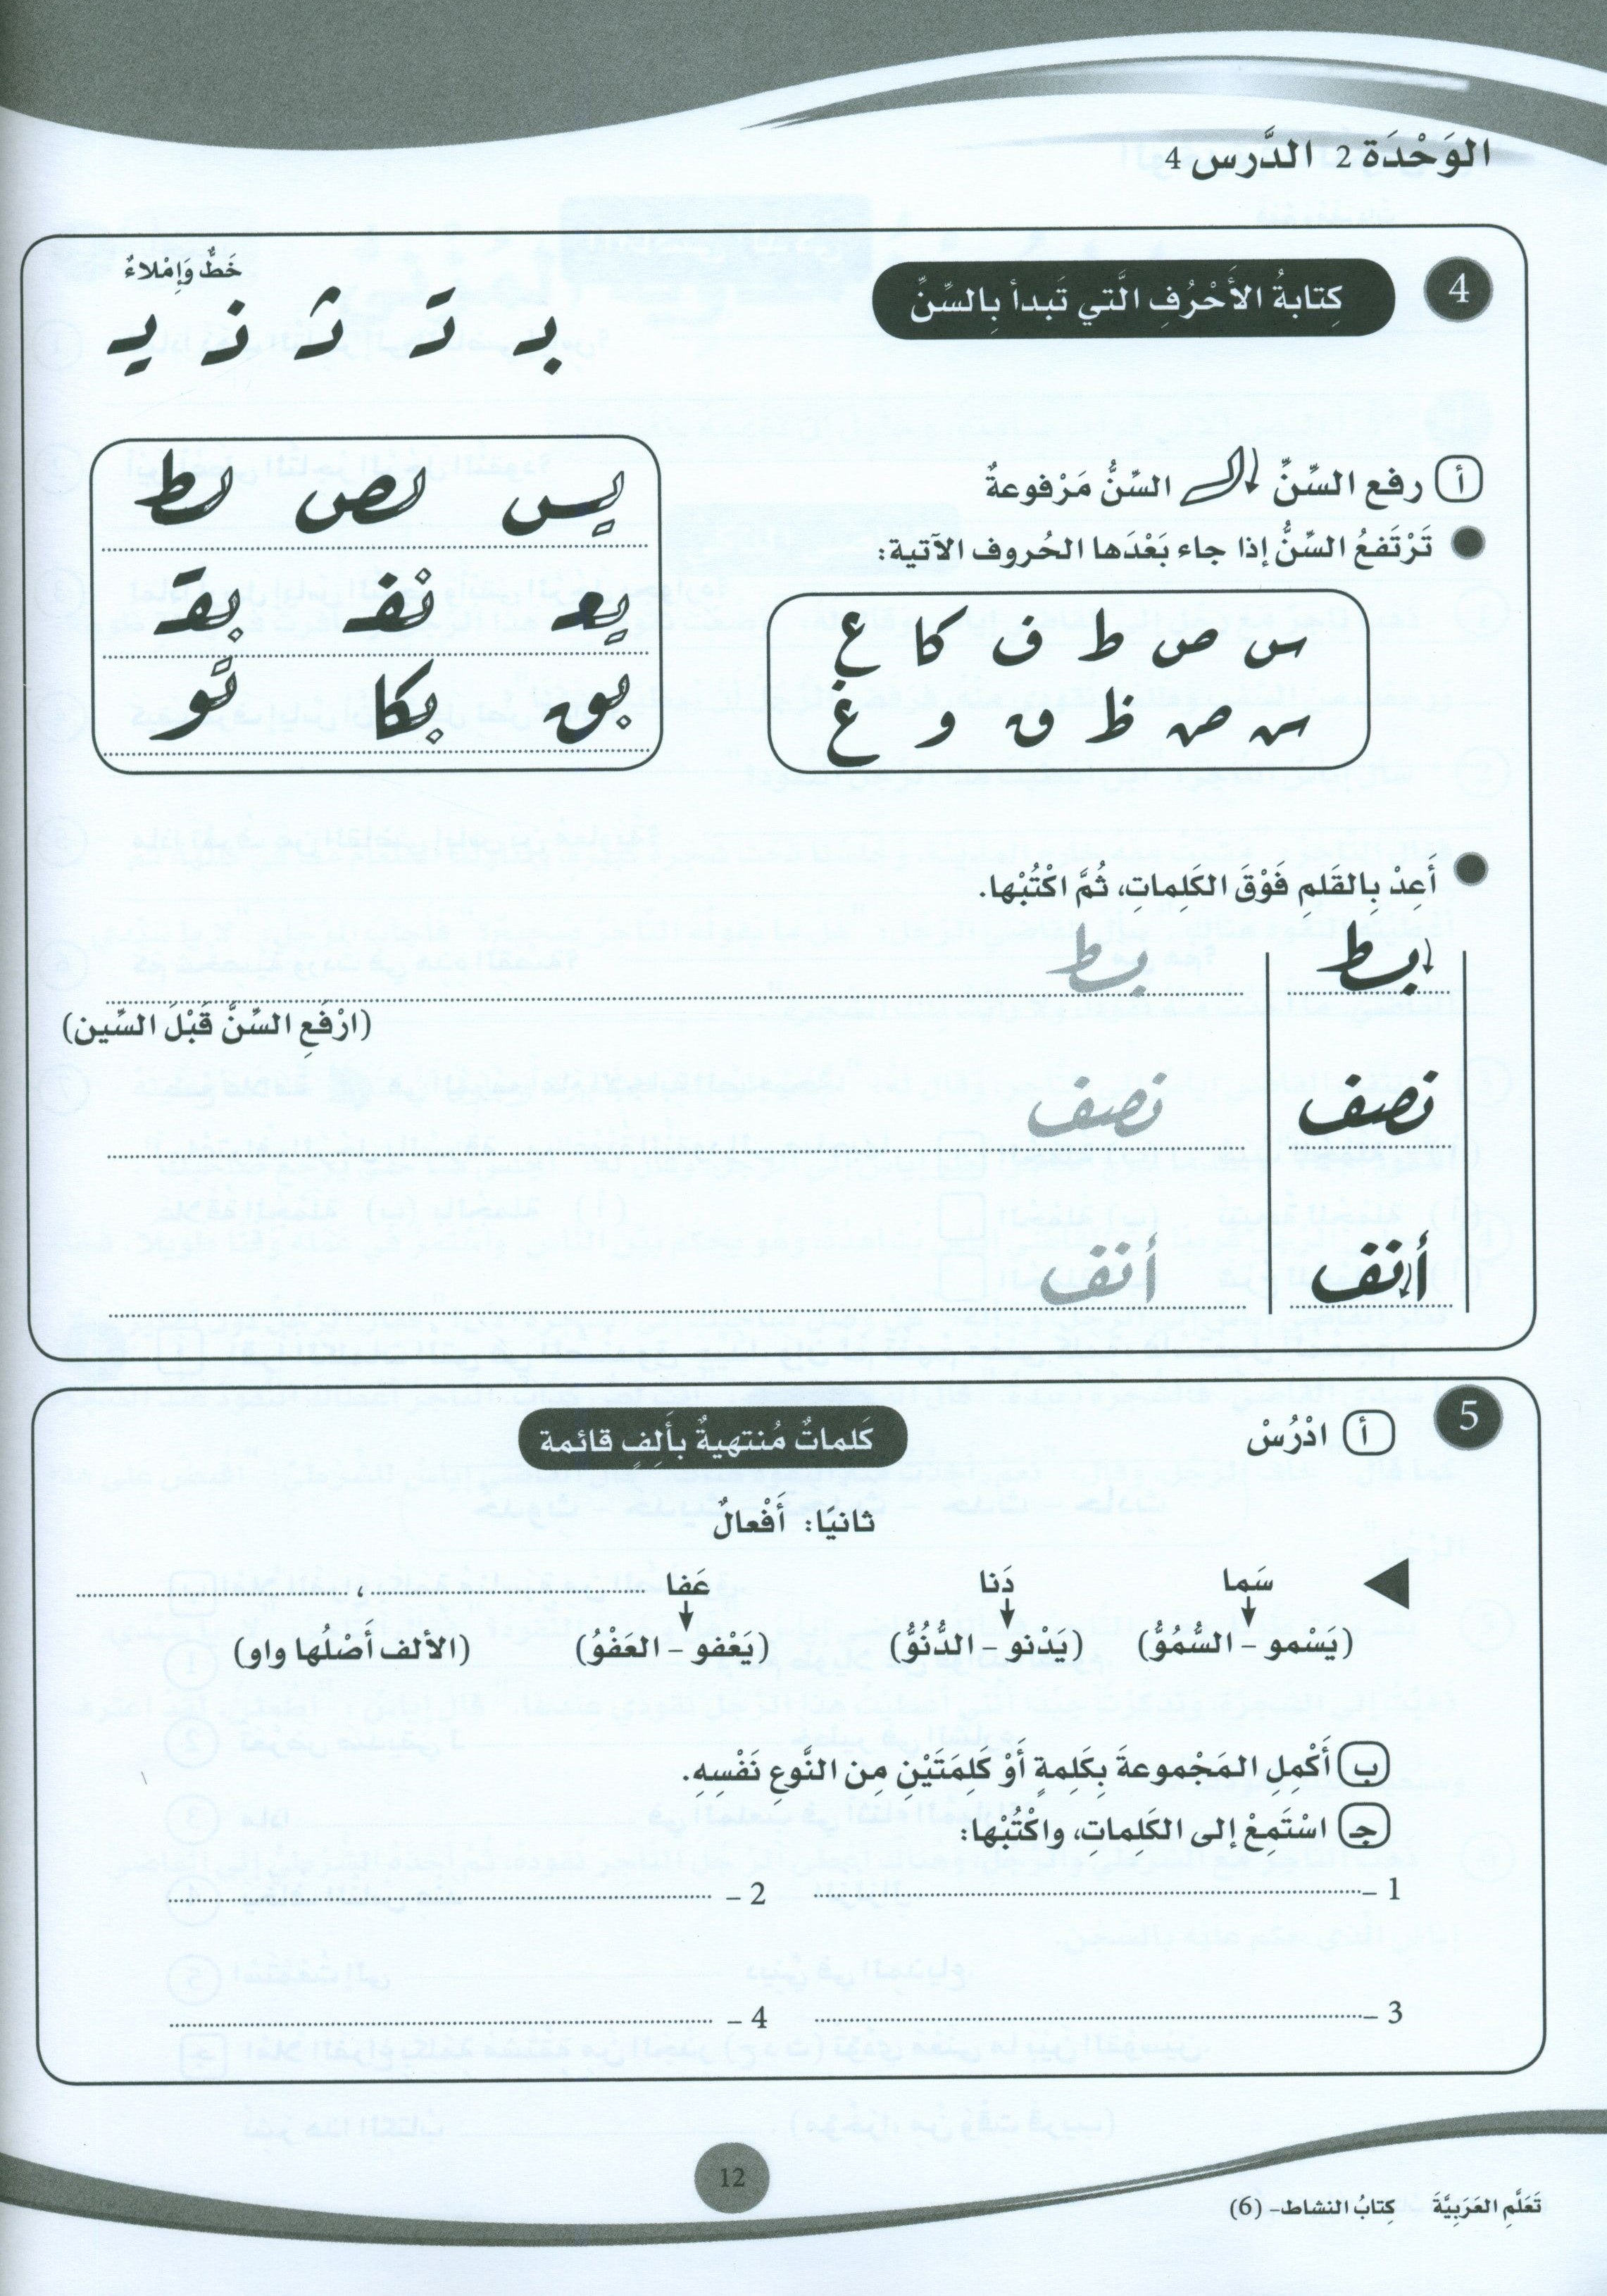 الوَحْدَة 2 الدَّرس 4
4 كِتابةُ الأَحْرُفِ الَّتي تَبدأ بِالسِّنِّ
خَطٌّ وَإِمْلاءٌ
بـ تـ ثـ نـ يـ
أ رفع السِّنِّ السِّنُّ مَرْفوعةٌ
تَرْتَفعُ السِّنُّ إذا جاء بَعْدَها الحُروف الآتية:
س ص ط ف كا ع
س ض ظ ق و غ
يعـ نفـ بقـ
بق بكا تو
أَعِدْ بِالقَلمِ فَوْقَ الكَلِماتِ، ثُمَّ اكْتُبْها.
بسط بسط
(ارْفَعِ السِّنَّ قَبْلَ السِّين)
نصف نصف
أنف أنف
5 أ ادْرُسْ كَلماتٌ مُنتهيةٌ بأَلِفٍ قائمة
ثانيًا: أَفْعالٌ
سَما دَنا عَفا ،
(يَسْمو – السُّمُوُّ) (يَدْنو – الدُّنُوُّ) (يَعْفو – العَفْوُ) (الألف أَصْلُها واو)
ب أَكْمِلِ المَجْموعةَ بِكَلِمةٍ أَوْ كَلِمَتَيْنِ مِن النَّوعِ نَفْسِهِ.
جـ اسْتَمِعْ إلى الكَلِماتِ، واكْتُبْها:
1 – 2 –
3 – 4 –
12
تَعَلَّمِ العَرَبِيَّةَ كِتابُ النشاط – (6)